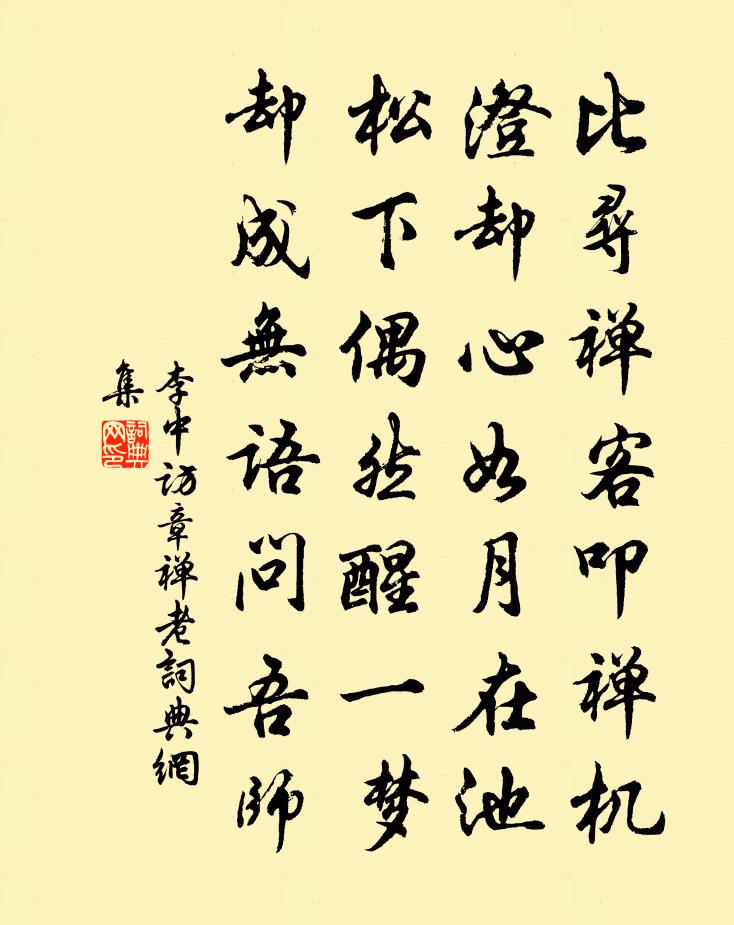 比尋禅客叩禅机
澄却心如月在池
松下偶然醒一梦
却成無语问吾師
李中访章禅老詞典網
集
詞典
网印